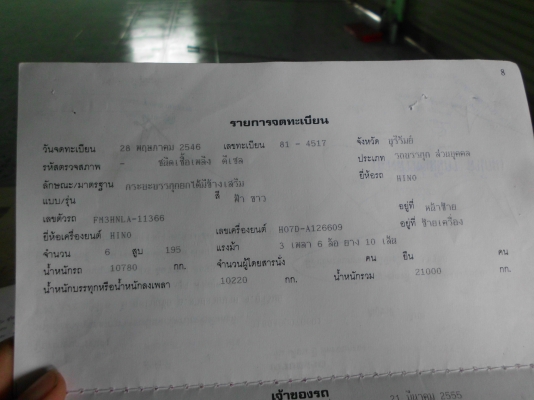 8
รายการจดทะเบียน
วันจดทะเบียน 28 พฤษภาคม 2546 เลขทะเบียน 81 - 4517 จังหวัด บุรีรัมย์
รหัสตรวจสภาพ - ชนิดเชื้อเพลิง ดีเซล ประเภท รถบรรทุก ส่วนบุคคล
ลักษณะ/มาตรฐาน กระบะบรรทุกยกได้มีข้างเสริม ยี่ห้อรถ HINO
แบบ/รุ่น สี ฟ้า ขาว
เลขตัวรถ FM3HNLA-11366 อยู่ที่ หน้าซ้าย
ยี่ห้อเครื่องยนต์ HINO เลขเครื่องยนต์ H07D-A126609 อยู่ที่ ซ้ายเครื่อง
จำนวน 6 สูบ 195 แรงม้า 3 เพลา 6 ล้อ ยาง 10 เส้น
น้ำหนักรถ 10780 กก. จำนวนผู้โดยสารนั่ง คน ยืน คน
น้ำหนักบรรทุกหรือน้ำหนักลงเพลา 10220 กก. น้ำหนักรวม 21000 กก.
เจ้าของรถ
21 มีนาคม 2555